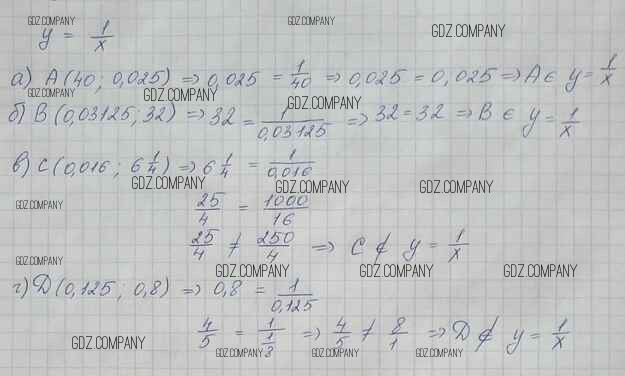 GDZ.COMPANY GDZ.COMPANY
y = 1/x GDZ.COMPANY
а) A(40; 0,025) => 0,025 = 1/40 => 0,025 = 0,025 => A ∈ y = 1/x
GDZ.COMPANY GDZ.COMPANY GDZ.COMPANY
б) B(0,03125; 32) => 32 = 1/0,03125 => 32 = 32 => B ∈ y = 1/x
в) C(0,016; 6 1/4) => 6 1/4 = 1/0,016
GDZ.COMPANY GDZ.COMPANY GDZ.COMPANY
GDZ.COMPANY 25/4 = 1000/16
25/4 ≠ 250/4 => C ∉ y = 1/x
GDZ.COMPANY GDZ.COMPANY GDZ.COMPANY GDZ.COMPANY
г) D(0,125; 0,8) => 0,8 = 1/0,125
4/5 = 1/(1/8) => 4/5 ≠ 8/1 => D ∉ y = 1/x
GDZ.COMPANY GDZ.COMPANY GDZ.COMPANY GDZ.COMPANY